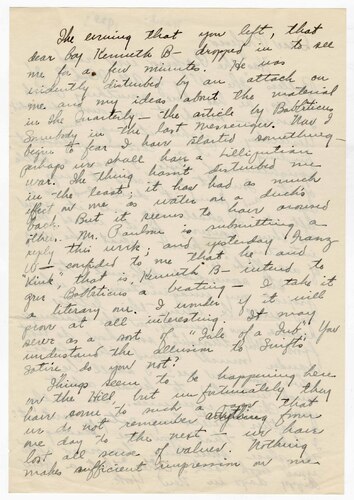 The evening that you left, that
dear boy Kenneth B— dropped in to see
me for a few minutes. He was
evidently disturbed by an attack on
me and my ideas about the material
in the Quarterly — the article by Bobleticus
Somebody in the last Messenger. Now I
begin to fear I have started something —
perhaps we shall have a Lilliputian
war. The thing hasn't disturbed me
in the least; it has had as much
effect on me as water on a duck's
back. But it seems to have aroused
others. Mr. Paulson is submitting a
reply this week; and yesterday Franz
W— confided to me that he and
"Kink", that is, Kenneth B— intend to
give Bobleticus a beating — I take it
a literary one. I wonder if it will
prove at all interesting. It may
serve as a sort of "Tale of a Tub". You
understand the allusion to Swift's
satire do you not?
Things seem to be happening here
on the Hill, but unfortunately they
have come to such a that
we do not remember anything from
one day to the next — we have
lost all sense of values. Nothing
makes sufficient impression on me